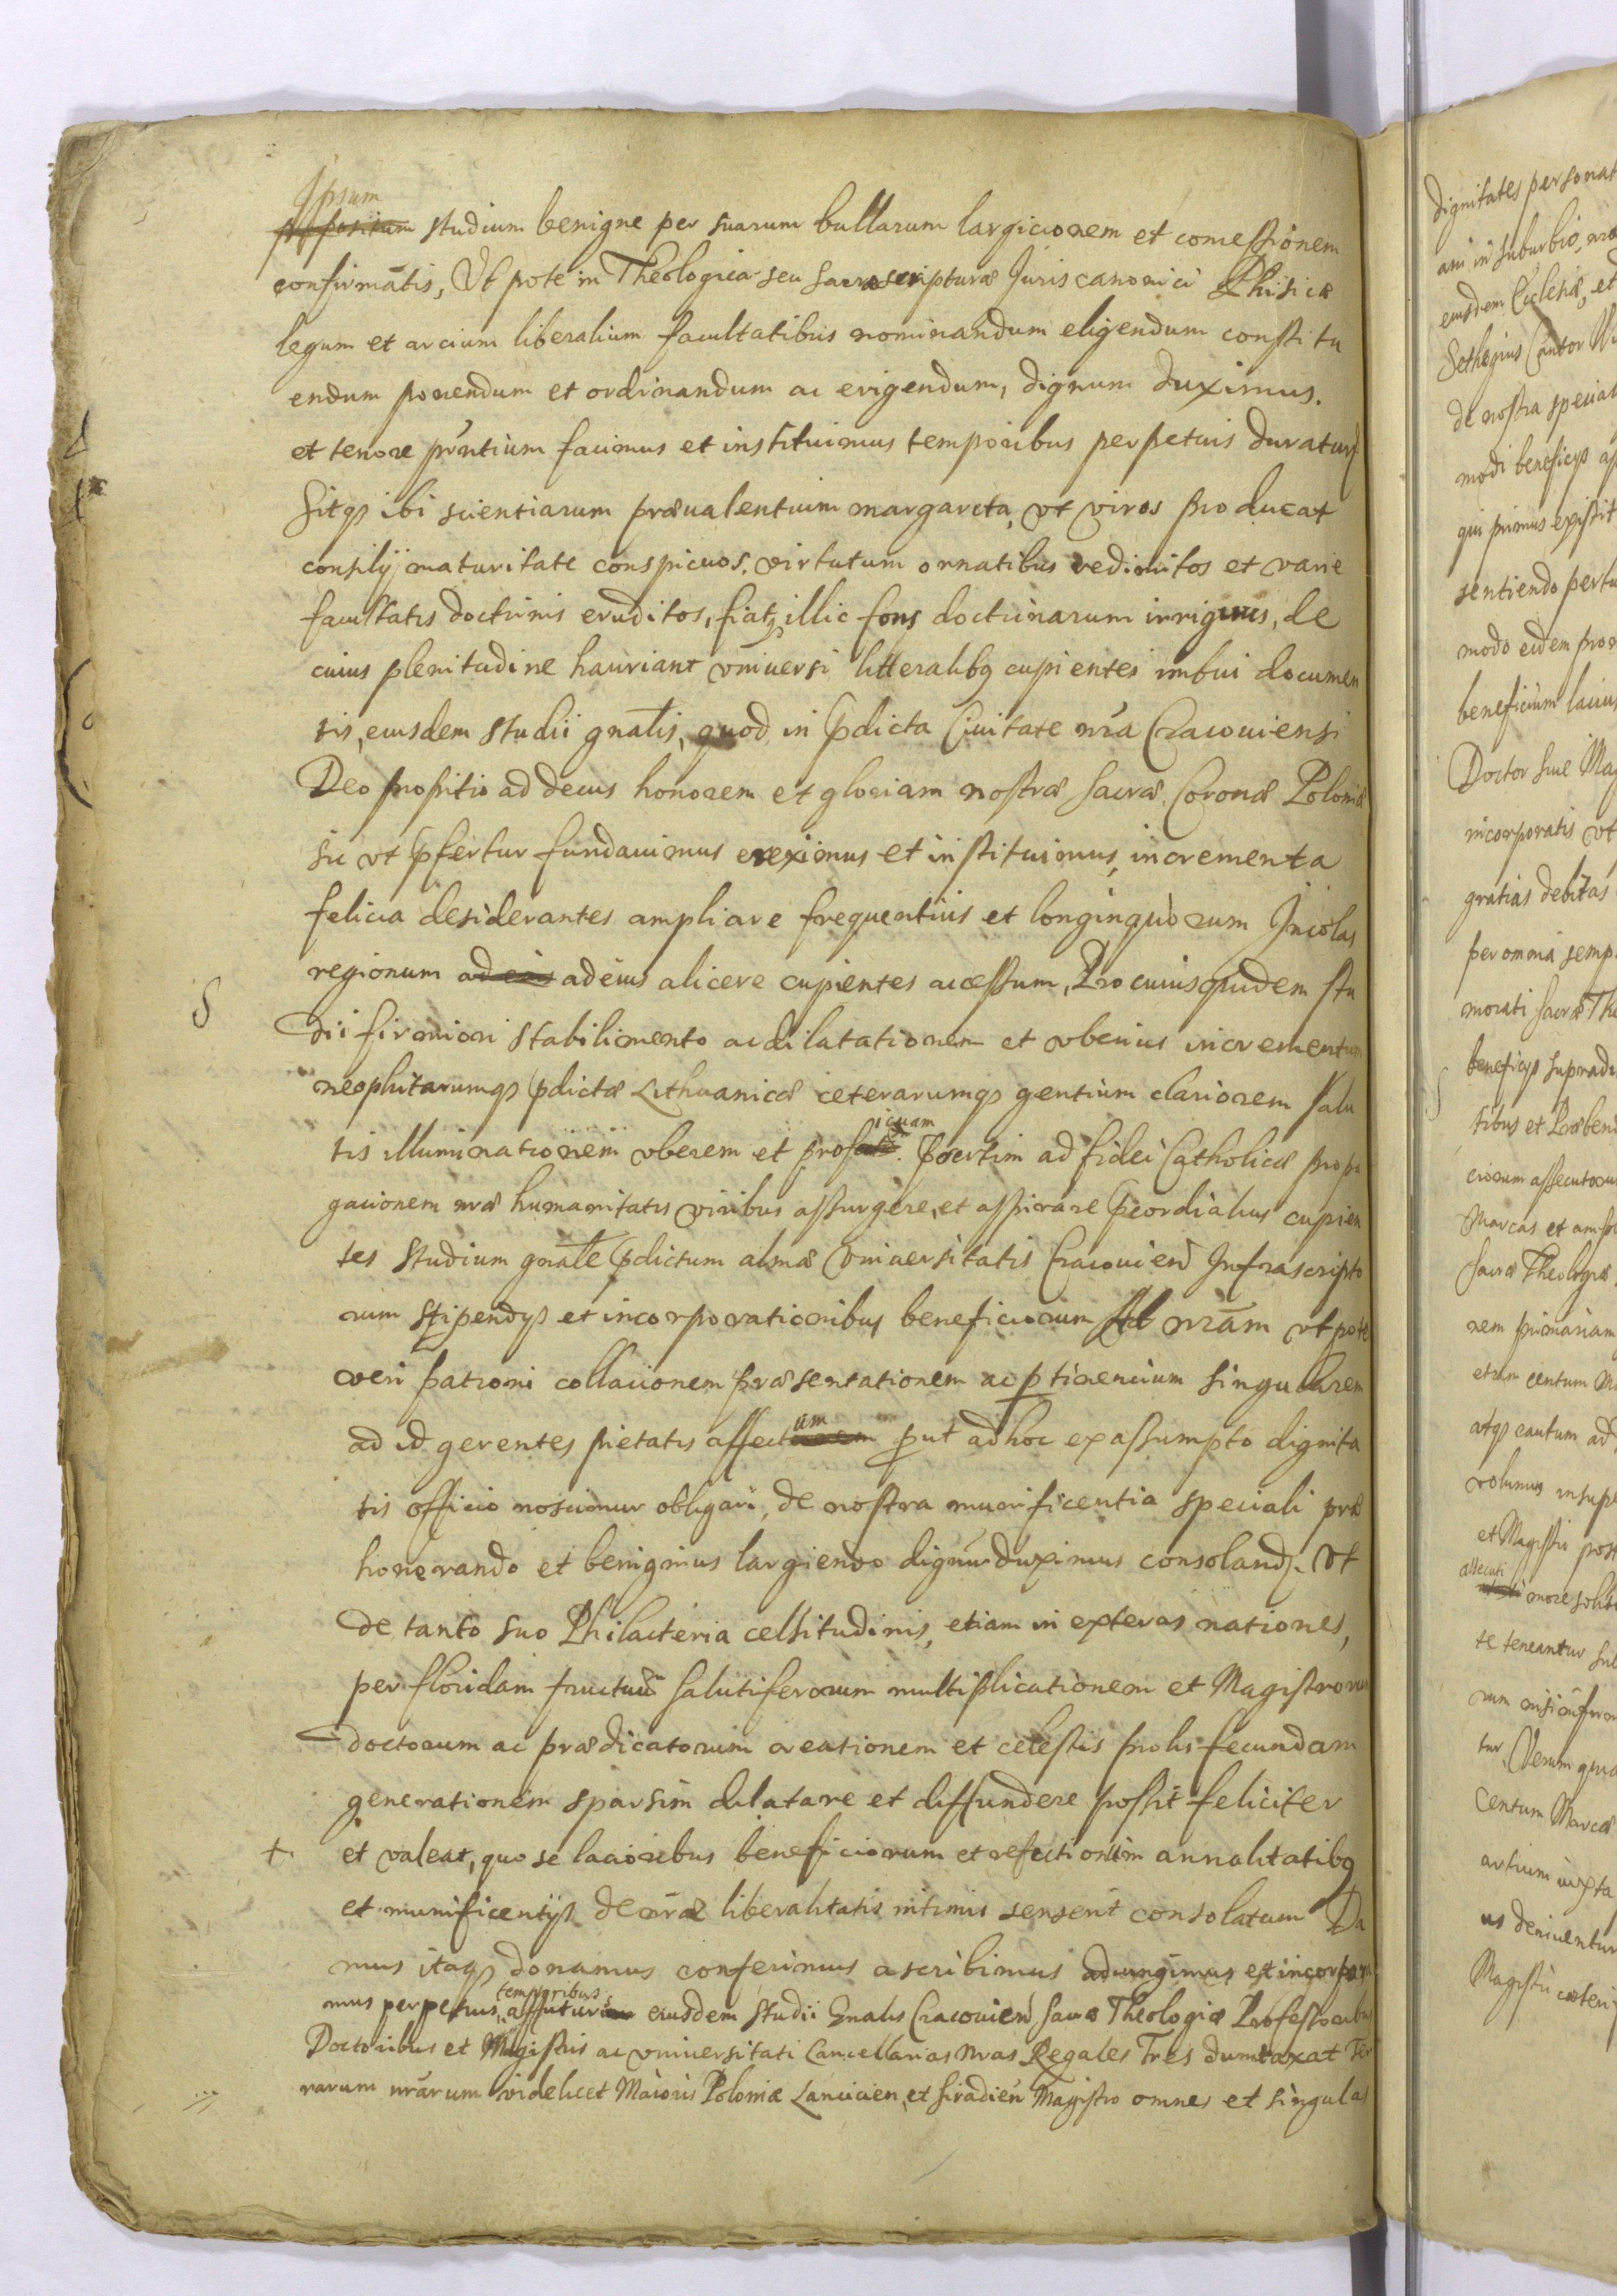 Ipsum
propositum studium benigne per suarum bullarum largicionem et concessionem
confirmatis, Ut pote in Theologica seu sacræ scripturæ Juris canonici Phisicæ
legum et arcium liberalium facultatibus nominandum eligendum constitu
endum ponendum et ordinandum ac erigendum, dignum duximus.
et tenore pr̃ntium facimus et instituimus temporibus perpetuis duratur
Sitqȝ ibi scientiarum præualentium margareta, vt viros producat
consilij maturitate conspicuos, virtutum ornatibus redimitos et varie
facultatis doctrinis eruditos, fiatqȝ illic fons doctrinarum irriguus, de
cuius plenitudine hauriant vniuersi litteralibȝ cupientes imbui documen
tis, eiusdem studii gnalis, quod in pdicta Ciuitate nr̃a Cracouiensi
Deo propitio ad decus honorem et gloriam nostræ sacræ Coronæ Poloniæ
sic vt pfertur fundauimus ereximus et instituimus, incrementa
felicia desiderantes ampliare frequentius et longinquorum Jncolas
regionum ad eius ad eius alicere cupientes accessum, Pro cuiusquidem stu
dii firmiori stabilimento ac dilatationem et vberius incrementum
neophitarumqȝ pdictæ Lithuanicæ ceterarumqȝ gentium clariorem salu
icuam
tis illuminationem vberem et prof psertim ad fidei Catholicæ propa
gacionem nræ humanitatis viribus assurgere, et aspirare pcordialius cupien
tes studium gnãle pdictum almæ vniuersitatis Cracouien̄ Infrascripto
rum stipendys et incorporationibus beneficiorum Ad nrãm vt pote
veri patroni collacionem præsentationem ac ptinencium singularem
um
ad id gerentes pietatis affect put ad hoc ex assumpto dignita
tis officio noscimur obligari, de nostra munificentia speciali præ
honorando et benignius largiendo dignum duximus consoland. Vt
de tanto suo Philacteria celsitudinis, etiam in exteras nationes,
per floridam fructuũ salutiferorum multiplicationem et Magistrorum
doctorum ac prædicatorum creationem et celestis prolis fecundam
generationem sparsim dilatare et diffundere possit feliciter
+ et valeat, quo se lacioribus beneficiorum et refectionum annalitatibȝ
et munificentijs de nr̃æ liberalitatis intimis senserit consolatum Da
mus itaqȝ donamus conferimus ascribimus adiungimus et incorpora
temporibus
mus perpetuis, affuturis eiusdem studii Gnalis Cracouien̄ sacræ Theologiæ Professoribus
Doctoribus et Magistris ac vniuersitati Cancellarias Nras Regales Tres dumtaxat Ter
rarum nrãrum videlicet Maioris Poloniæ Lancicien, et siradien̄ Magistro omnes et singulas
dignitates personat
am in suburbio
eiusdem Ecclesiæ, et
Cantor
de nostra special
modi beneficys
qui primus existit
sentiendo
modo eidem
beneficium
Doctor siue Mag
incorporatis vt
gratias debitas
per omnia semp
morati sacræ The
beneficys supradi
tibus et Præben
ciorum assecutor
Marcas et
sacræ Theologiæ
nem primariam
centum
atqȝ cautum ad
volumus insup
et Magistri post
assecuti
more solit
te teneantur
rum
tur. Verum
Centum Marcæ
artium iuxta
us deriuentur
Magistri cæteri